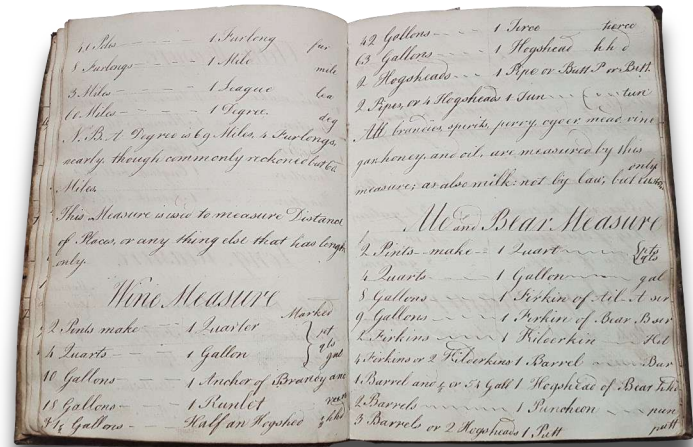 40 Poles 1 Furlong fur
8 Furlongs 1 Mile mile
3 Miles 1 League lea
60 Miles 1 Degree. deg
N.B. A Degree is 69 Miles, 4 Furlongs,
nearly, though commonly reckoned but 60
Miles
This Measure is used to measure Distance
of Places, or any thing else that has length
only.
Wine Measure
Marked
2 Pints make 1 Quarter pt
4 Quarts 1 Gallon qts gal
10 Gallons 1 Anchor of Brandy anc
18 Gallons 1 Runlet run
31½ Gallons Half an Hogshed ½ hhd
42 Gallons 1 Terce tierce
63 Gallons 1 Hogshead hhd
2 Hogsheads 1 Pipe or Butt P or Butt.
2 Pipes, or 4 Hogsheads 1 Tun tun
All brandies, spirits, perry, cyder mead, vine
gar, honey, and oil, are measured by this
measure; as also milk: not by law, but custom only
Ale and Bear Measure
2 Pints make 1 Quart pts qts
4 Quarts 1 Gallon gal
8 Gallons 1 Firkin of Ail A
9 Gallons 1 Firkin of Bear B
2 Firkins 1 Kilderkin Kil
4 Firkins or 2 Kilderkins 1 Barrel Bar
1 Barrel and ½ or 54 Gall 1 Hogshead of Bear
2 Barrels 1 Puncheon pun
3 Barrels or 2 Hogsheads 1 Butt butt